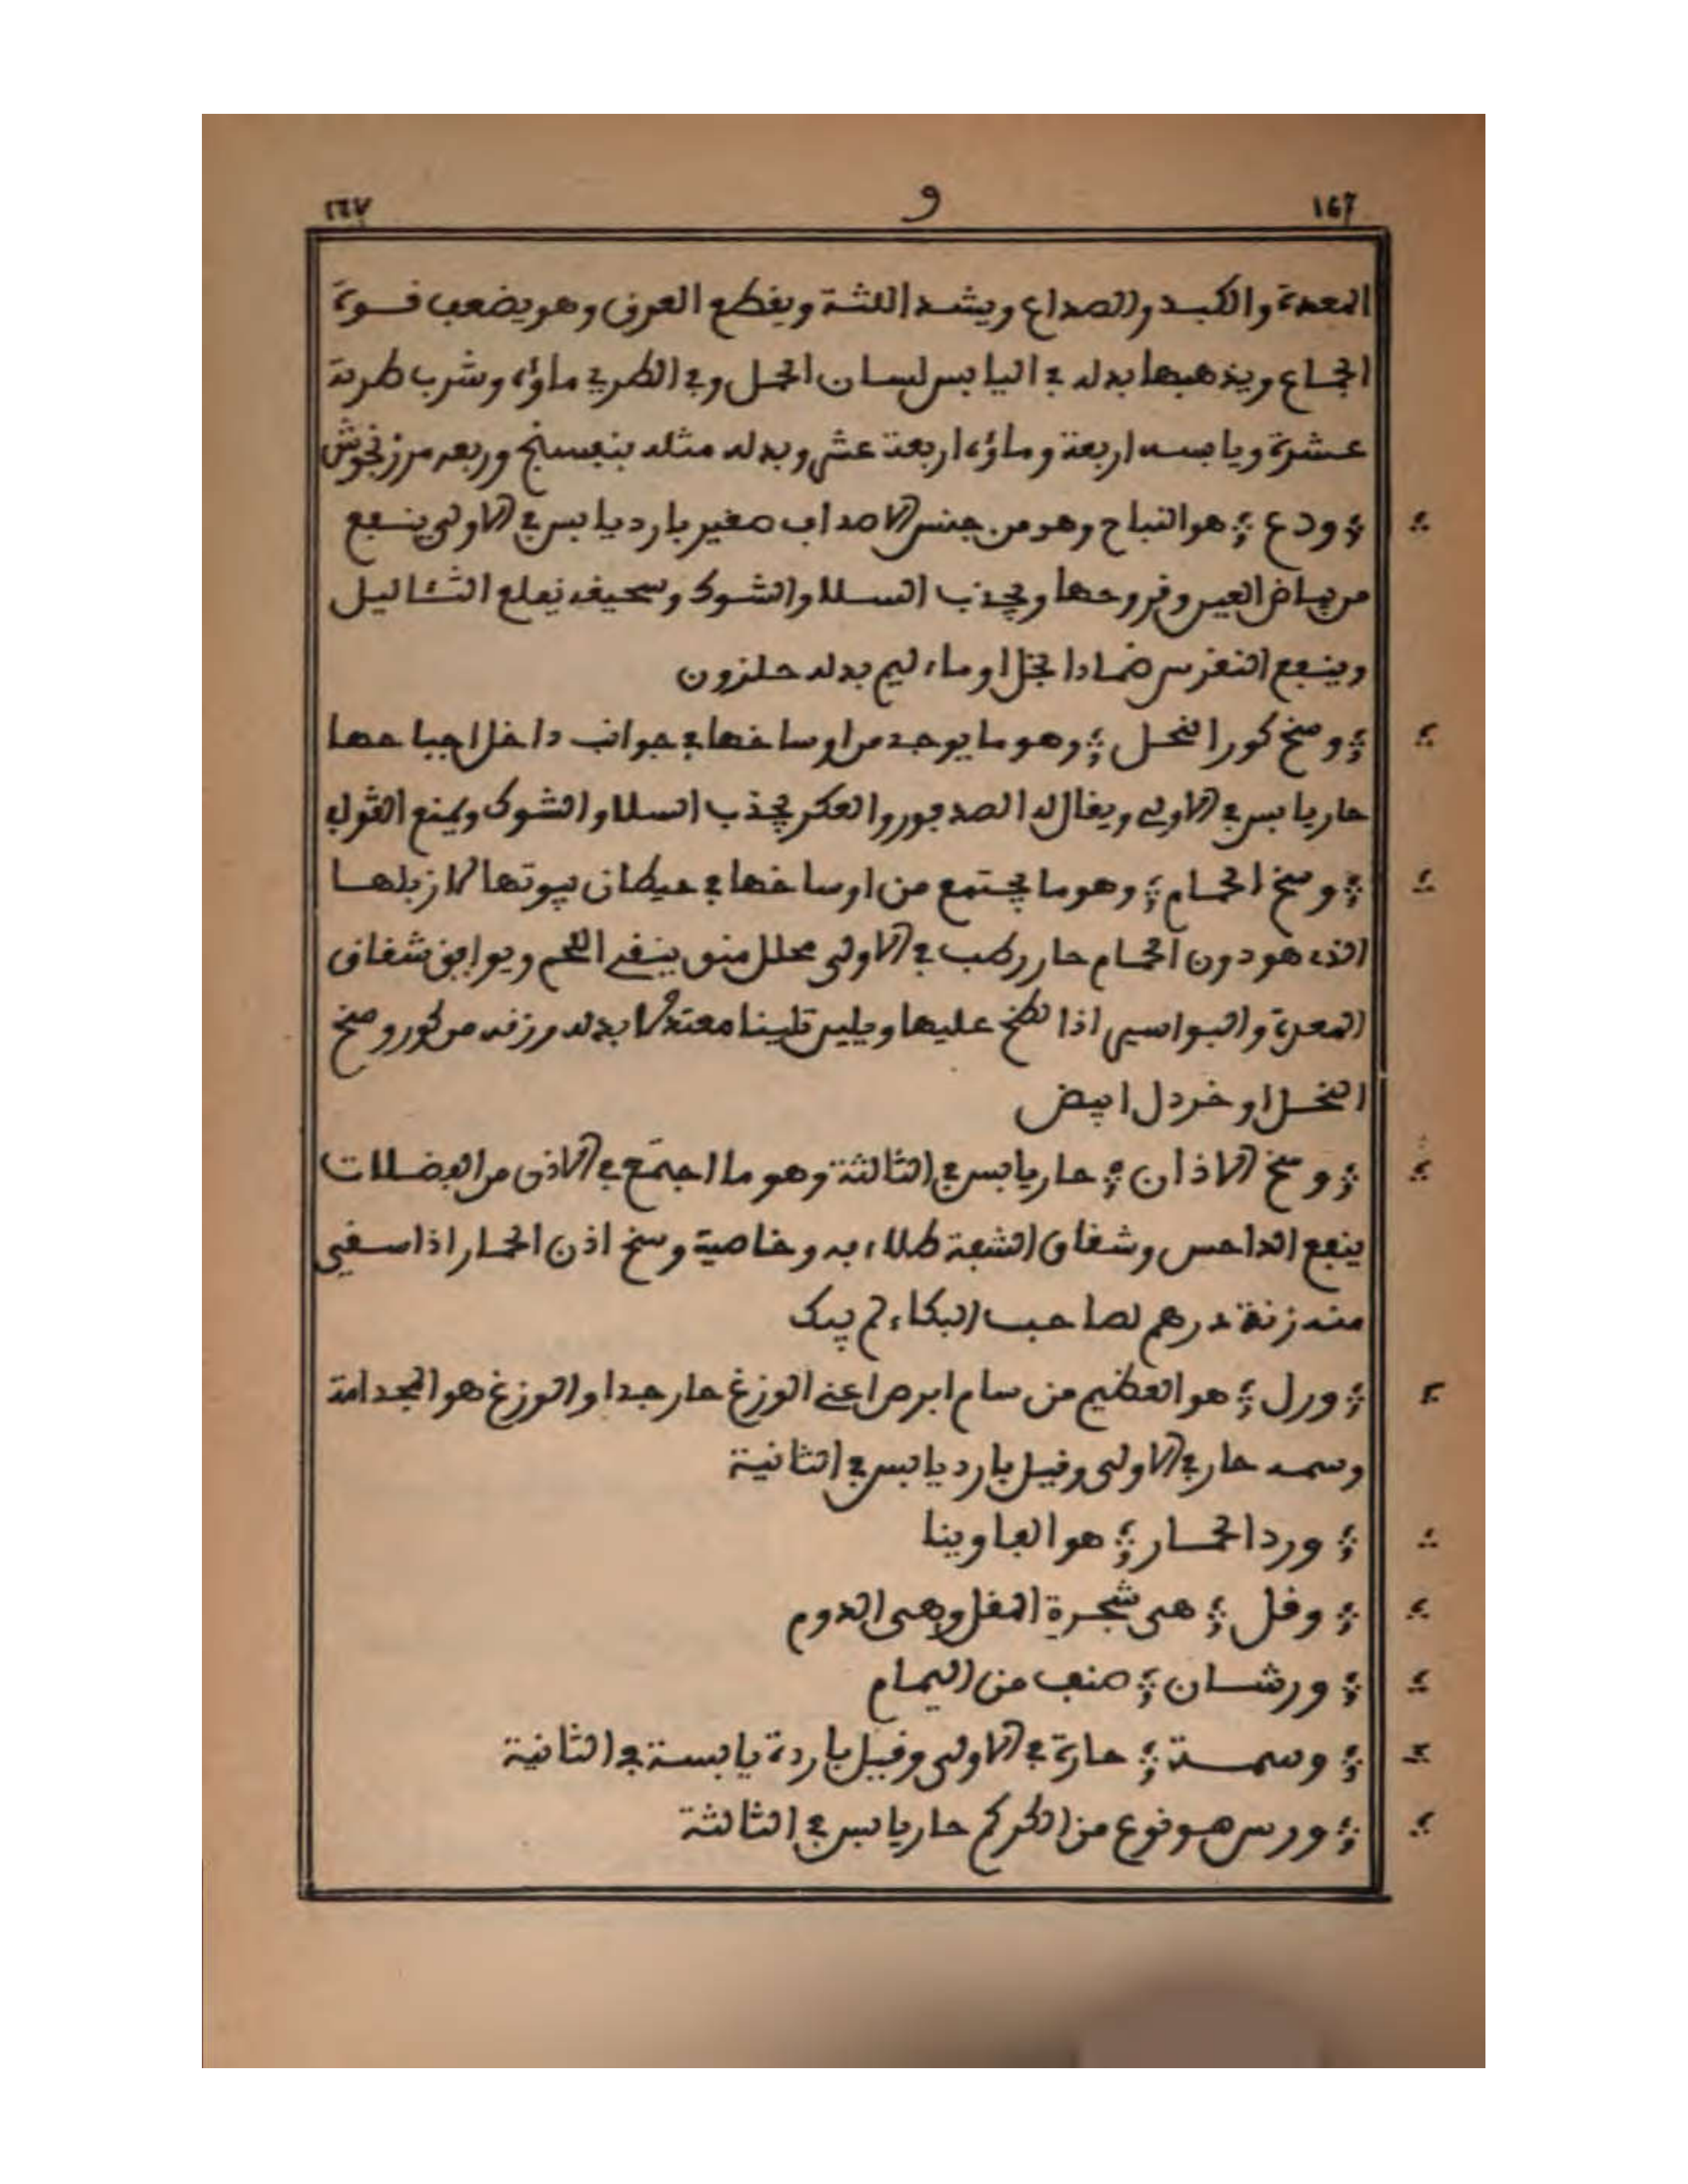 ١٦٦ و ١٦٧
المعدة والكبد والصداع ويشد اللثة ويقطع العرق وهو يضعف قوة
الجماع ويذهبها بدله في اليابس لسان الحمل وفي الطري ماؤه وشرب طرية
عشرة ويابسه اربعة وماؤه اربعة عشر وبدله مثله بنفسنج وربعه مرزنجوش
ودع هو النباح وهو من جنس الاصداف صغير بارد يابس في الاولى ينفع
من بياض العين وقروحها ويجذب السلا والشوك وسحيقه يقلع الثئاليل
وينفع النقرس ضمادا بخل او ماء ليم بدله حلزون
وصخ كور النحل وهو ما يوجد من اوساخها في جوانب داخل اجباحها
حار يابس في الاولى ويقال له الصدبور والعكر يجذب السلا والشوك ويمنع القولي
وسخ الحمام وهو ما يجتمع من اوساخها في حيطان بيوتها لا زبلها
الذي هو دون الحمام حار رطب في الاولى محلل منق ينقي اللحم ويوافق شقاق
المعدة والبواسير اذا لطخ عليها ويلين تليينا معتدلا بدله وزنه من كور وصخ
النحل او خردل ابيض
وسخ الاذان حار يابس في الثالثة وهو ما اجتمع في الاذن من الفضلات
ينفع الداحس وشقاق الشفة طلاء به وخاصية وسخ اذن الحمار اذا سقي
منه زنة درهم لصاحب البكاء لم يبك
ورل هو العظيم من سام ابرص اعني الوزغ حار جدا والوزغ هو المجدامة
وسمه حار في الاولى وقيل بارد يابس في الثانية
ورد الحمار هو الفاوينا
وقل هى شجرة المقل وهى الدوم
ورشان صنف من اليمام
وسمة حارة في الاولى وقيل باردة يابسة في الثانية
ورس هو نوع من الكركم حار يابس في الثالثة